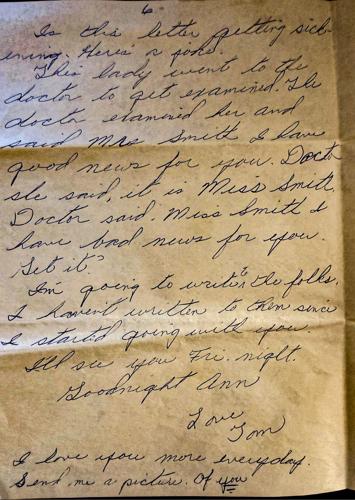 6.
Is this letter getting sick-
ening. Here's a joke.
This lady went to the
doctor to get examined. The
doctor examined her and
said Mrs Smith I have
good news for you. Doctor
she said, it is Miss Smith.
Doctor said. Miss Smith I
have bad news for you.
Get it?
I'm going to write to the folks.
I haven't written to them since
I started going with you.
I'll see you Fri. night.
Goodnight Ann
Love
Tom
I love you more everyday.
Send me a picture. Of you